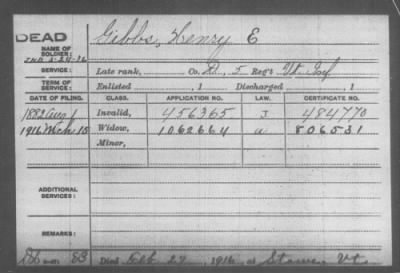 DEAD
Gibbs, Henry E
NAME OF SOLDIER:
SERVICE: Late rank, Co. D, 5 Reg't Vt. Inf
TERM OF SERVICE: Enlisted , 1 Discharged , 1
DATE OF FILING. CLASS. APPLICATION NO. LAW. CERTIFICATE NO.
1882 Aug 1 Invalid, 456365 J 484770
1916 Mch 15 Widow, 1062664 a 806531
Minor,
ADDITIONAL SERVICES:
REMARKS:
83 Died Feb 27, 1916 at Stowe, Vt.